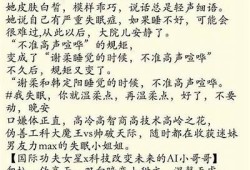 她皮肤白皙，模样乖巧，说话总是轻声细语。
她说自己有严重失眠症，如果睡不好，可能会
很难过，从此以后，大院儿安静了。
“不准高声喧哗”的规矩，
变成了“谢柔睡觉的时候，不准高声喧哗”
不久后，规矩又变了。
“谢柔和韩定阳睡觉的时候，不准高声喧哗。”
#我失眠，你就温柔点，再温柔点，好了，不要
动，晚安
口嫌体正直，高冷高智商高技术高冷之花，
伪善工科大魔王vs帅破天际，随时都在收获迷妹
男友力max的失眠小姐姐。
【国际功夫女星x科技改变未来的AI小哥哥】